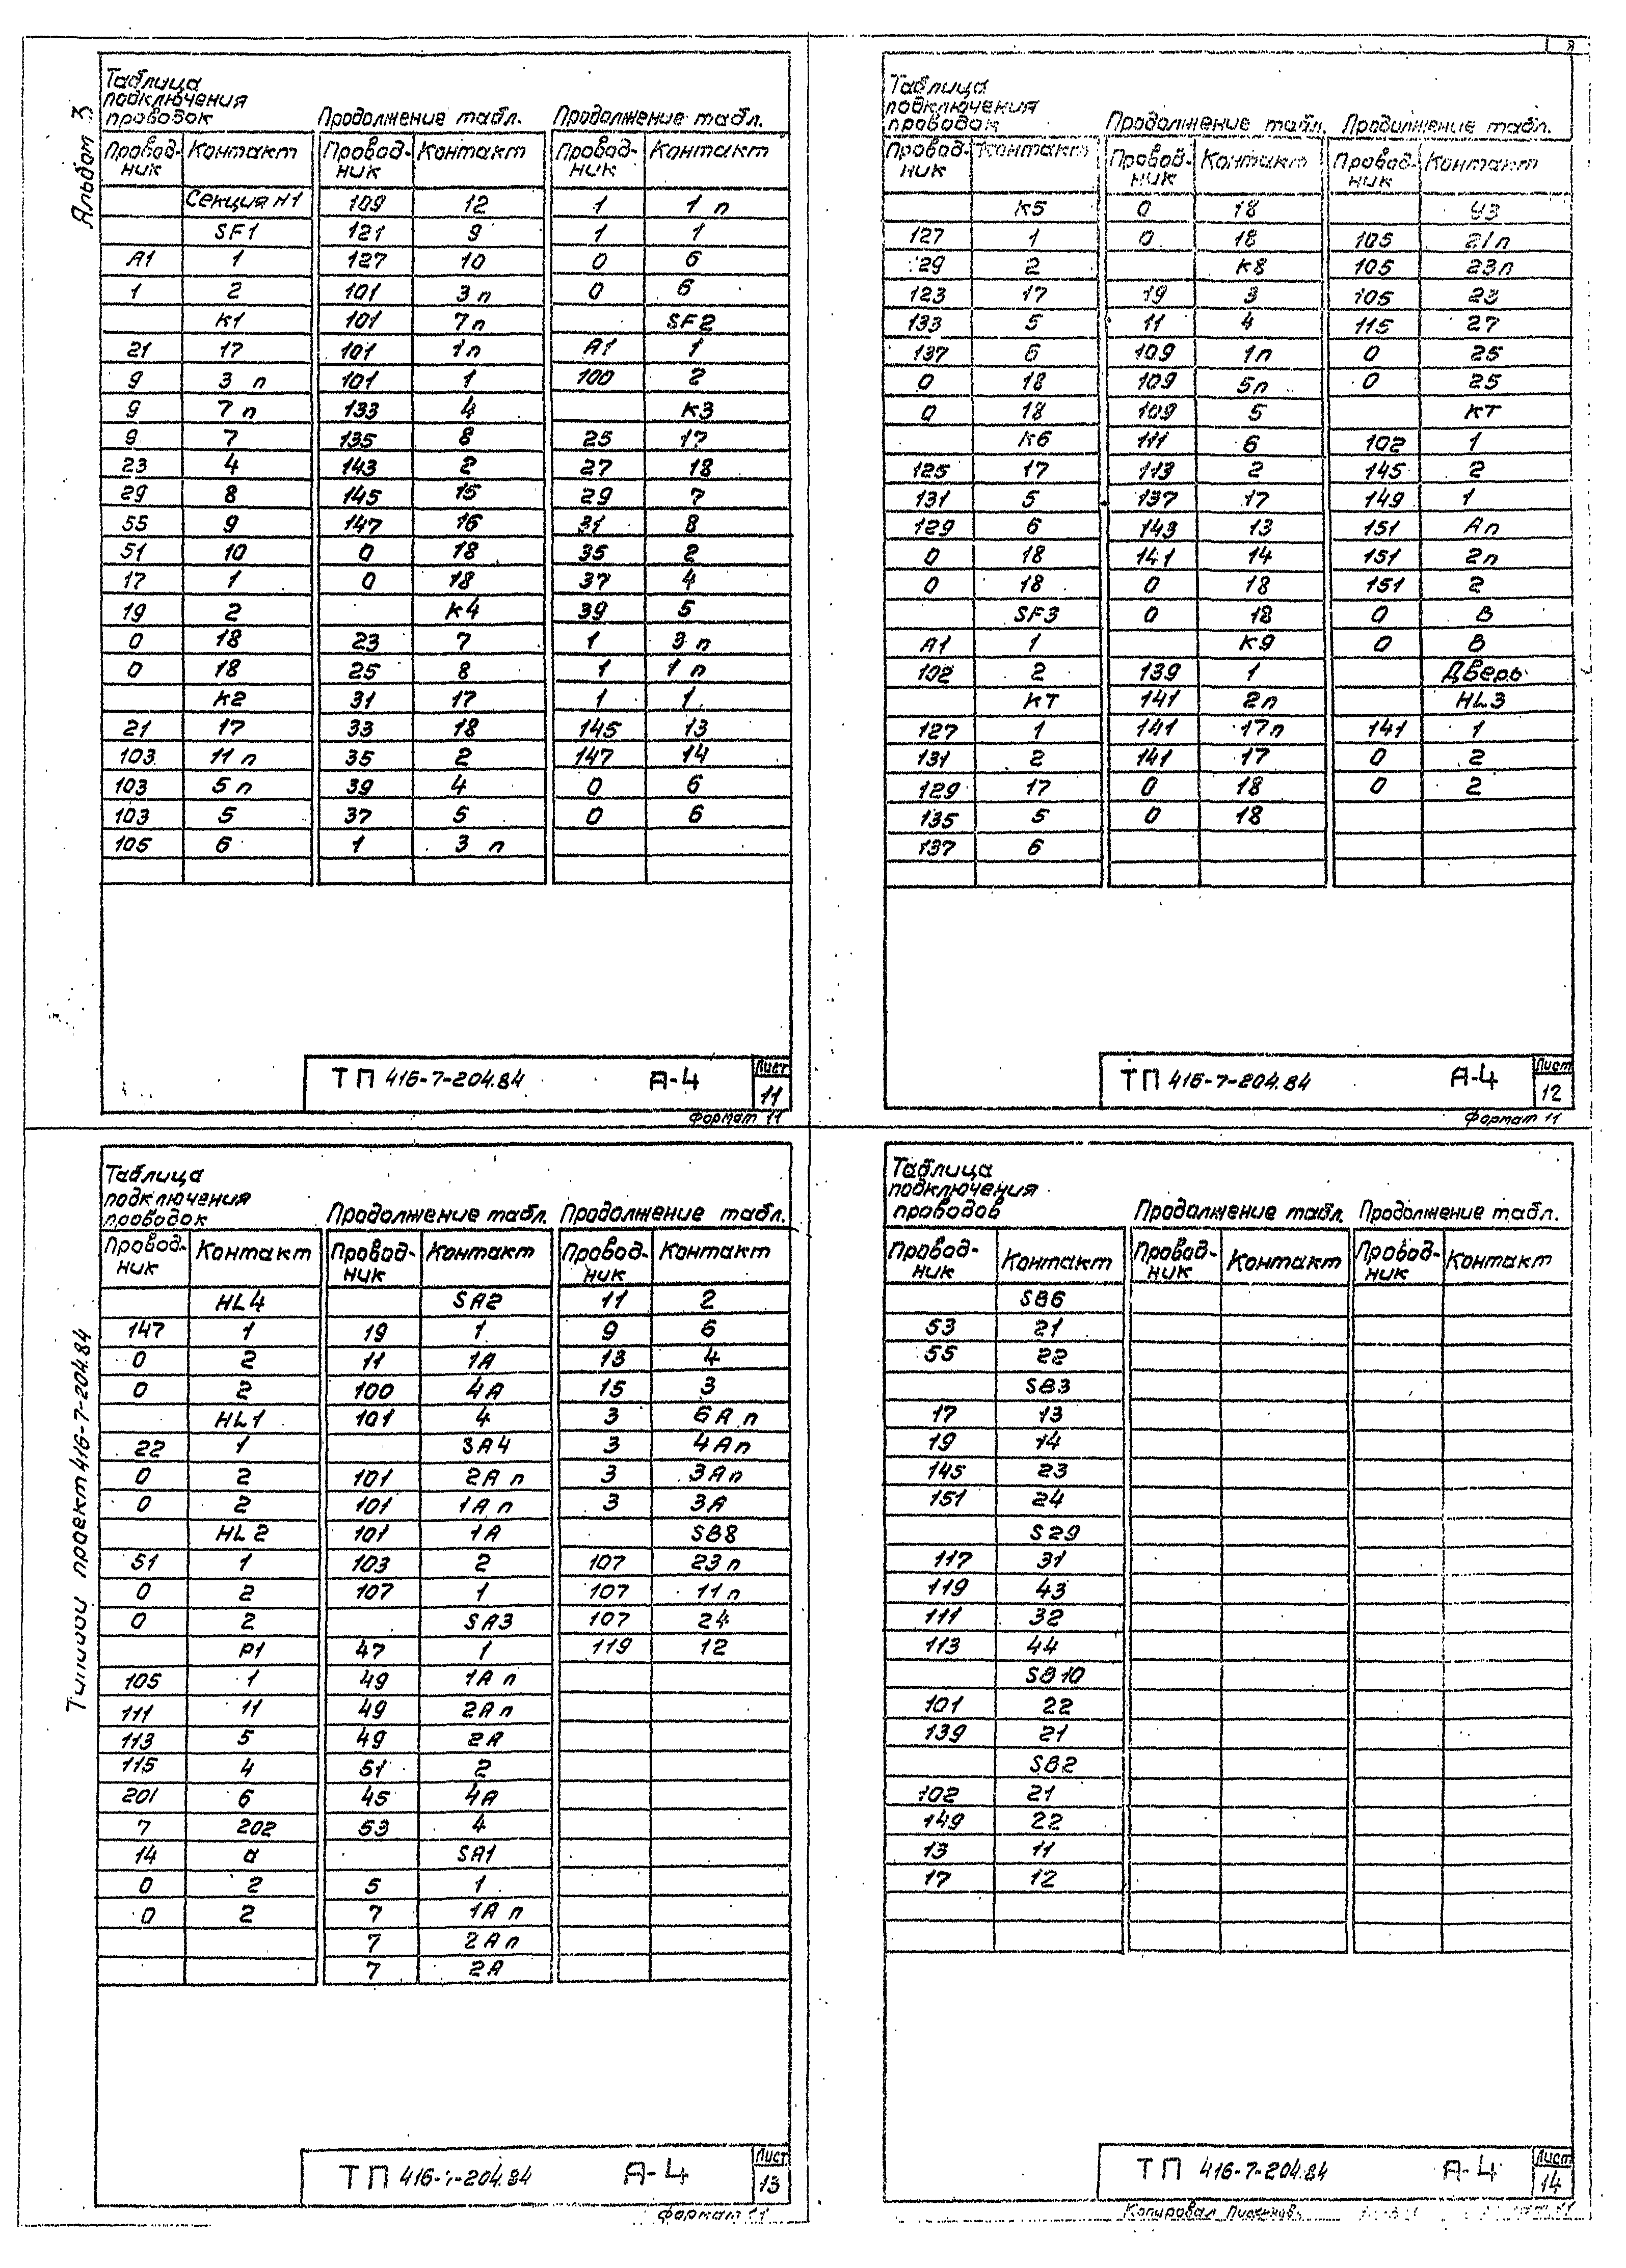 Альбом 3
Таблица
подключения
проводок
Продолжение табл. Продолжение табл.
Провод-ник Контакт Провод-ник Контакт Провод-ник Контакт
Секция н1 109 12 1 1 п
SF1 121 9 1 1
А1 1 127 10 0 6
1 2 101 3 п 0 6
К1 101 7п SF2
21 17 101 1п А1 1
9 3 п 101 1 100 2
9 7 п 133 4 К3
9 7 135 8 25 17
23 4 143 2 27 18
29 8 145 15 29 7
55 9 147 16 31 8
51 10 0 18 35 2
17 1 0 18 37 4
19 2 К4 39 5
0 18 23 7 1 3 п
0 18 25 8 1 1 п
К2 31 17 1 1
21 17 33 18 145 13
103 11 п 35 2 147 14
103 5 п 39 4 0 6
103 5 37 5 0 6
105 6 1 3 п
ТП 416-7-204.84 А-4 Лист 11
Формат 11
8
Таблица
подключения
проводок
Продолжение табл. Продолжение табл.
Провод-ник Контакт Провод-ник Контакт Провод-ник Контакт
К5 0 18 У3
127 1 0 18 105 21п
129 2 К8 105 23п
123 17 19 3 105 23
133 5 11 4 115 27
137 6 109 1п 0 25
0 18 109 5п 0 25
0 18 109 5 КТ
К6 111 6 102 1
125 17 113 2 145 2
131 5 137 17 149 1
129 6 143 13 151 Ап
0 18 141 14 151 2п
0 18 0 18 151 2
SF3 0 18 0 В
А1 1 К9 0 В
102 2 139 1 Дверь
КТ 141 2п HL3
127 1 141 17п 141 1
131 2 141 17 0 2
129 17 0 18 0 2
135 5 0 18
137 6
ТП 416-7-204.84 А-4 Лист 12
Формат 11
Типовой проект 416-7-204.84
Таблица
подключения
проводок
Продолжение табл. Продолжение табл.
Провод-ник Контакт Провод-ник Контакт Провод-ник Контакт
HL4 SA2 11 2
147 1 19 1 9 6
0 2 11 1А 13 4
0 2 100 4А 15 3
HL1 101 4 3 6А п
22 1 SA4 3 4Ап
0 2 101 2А п 3 3Ап
0 2 101 1А п 3 3А
HL2 101 1А SB8
51 1 103 2 107 23 п
0 2 107 1 107 11 п
0 2 SA3 107 24
Р1 47 1 119 12
105 1 49 1А п
111 11 49 2А п
113 5 49 2А
115 4 51 2
201 6 45 4А
7 202 53 4
14 а SA1
0 2 5 1
0 2 7 1А п
7 2А п
7 2А
ТП 416-7-204.84 А-4 Лист 13
Формат 11
Таблица
подключения
проводов
Продолжение табл. Продолжение табл.
Провод-ник Контакт Провод-ник Контакт Провод-ник Контакт
SB6
53 21
55 22
SB3
17 13
19 14
145 23
151 24
S29
117 31
119 43
111 32
113 44
SB10
101 22
139 21
SB2
102 21
149 22
13 11
17 12
ТП 416-7-204.84 А-4 Лист 14
Копировал